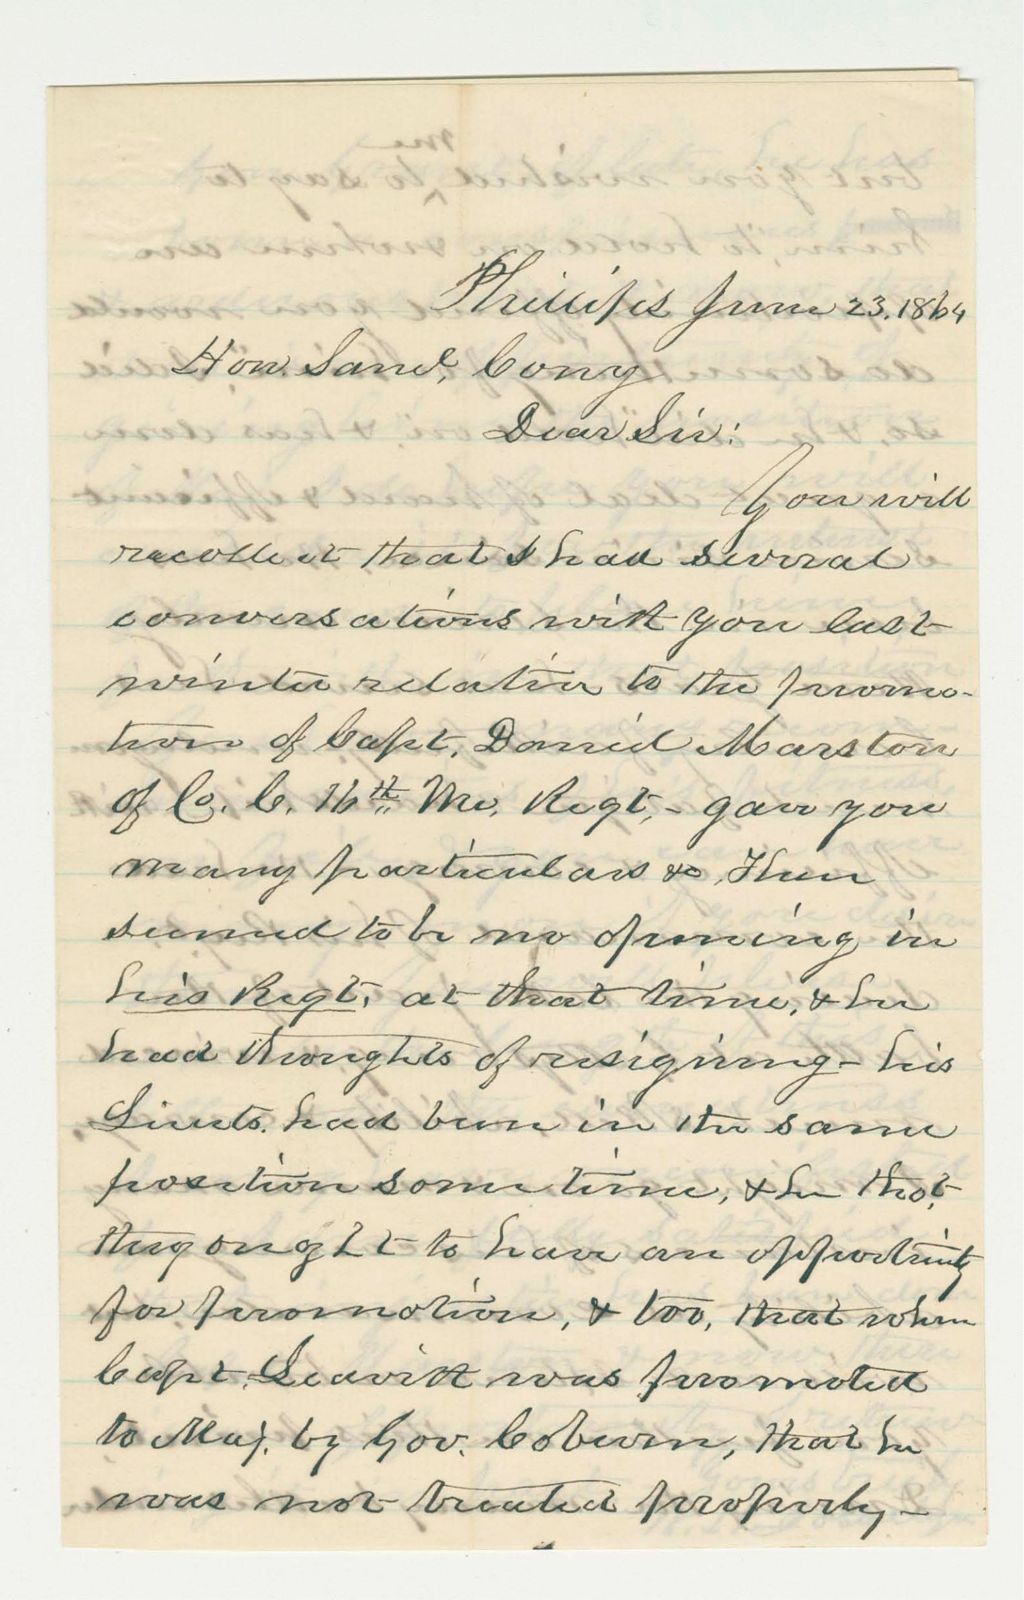 Phillips June 23. 1864
Hon. Saml. Cony
Dear Sir:
You will
recollect that I had several
conversations with you last
winter relative to the promo-
tion of Capt. Daniel Marston
of Co. C. 16th Me. Regt, - gave you
many particulars &c, There
seemed to be no opening in
his Regt, at that time, & he
had thoughts of resigning - his
Lieuts. had been in the same
position some time, & he tho't
they ought to have an opportunity
for promotion, & too, that when
Capt. Leavitt was promoted
to Maj. by Gov. Coburn, that he
was not treated properly -